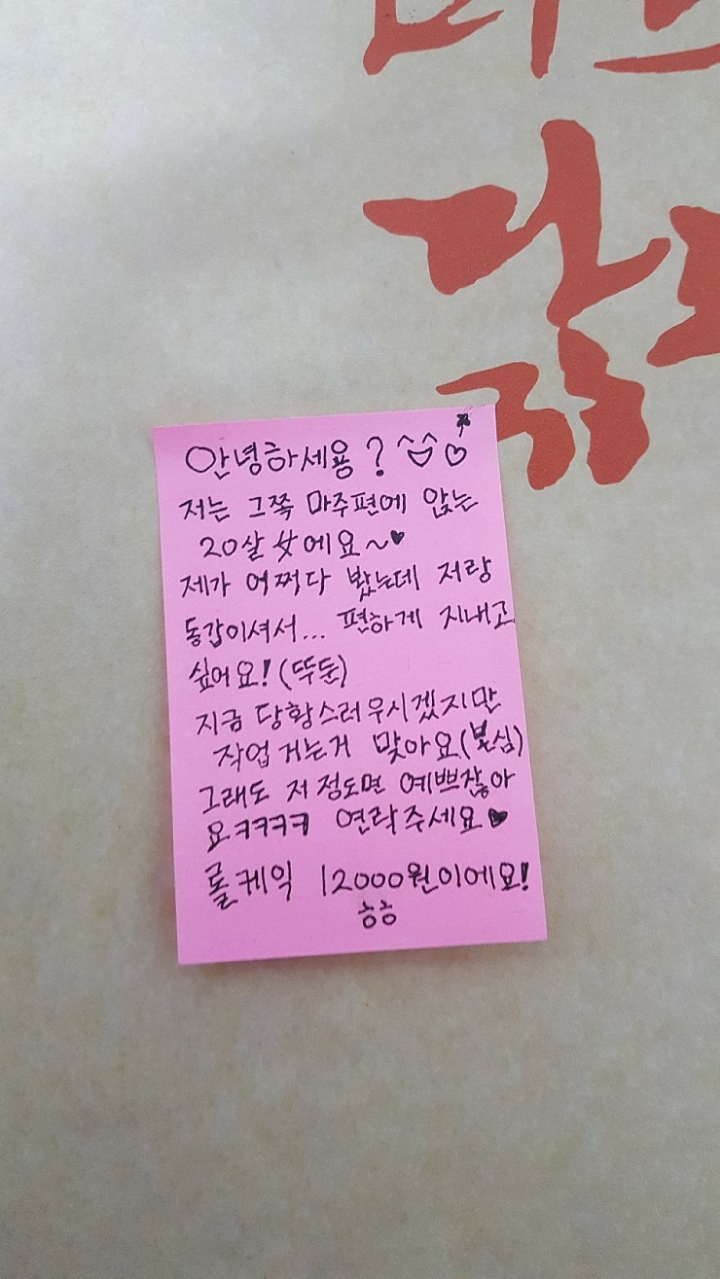 닭
안녕하세용? ^^ ♡
저는 그쪽 마주편에 앉는
20살 女에요~♥
제가 어쩌다 봤는데 저랑
동갑이셔서... 편하게 지내고
싶어요! (뚜둔)
지금 당황스러우시겠지만
작업 거는거 맞아요(본심)
그래도 저 정도면 예쁘잖아
요ㅋㅋㅋㅋ 연락주세요♥
롤케익 12000원이에요!
ㅎㅎ